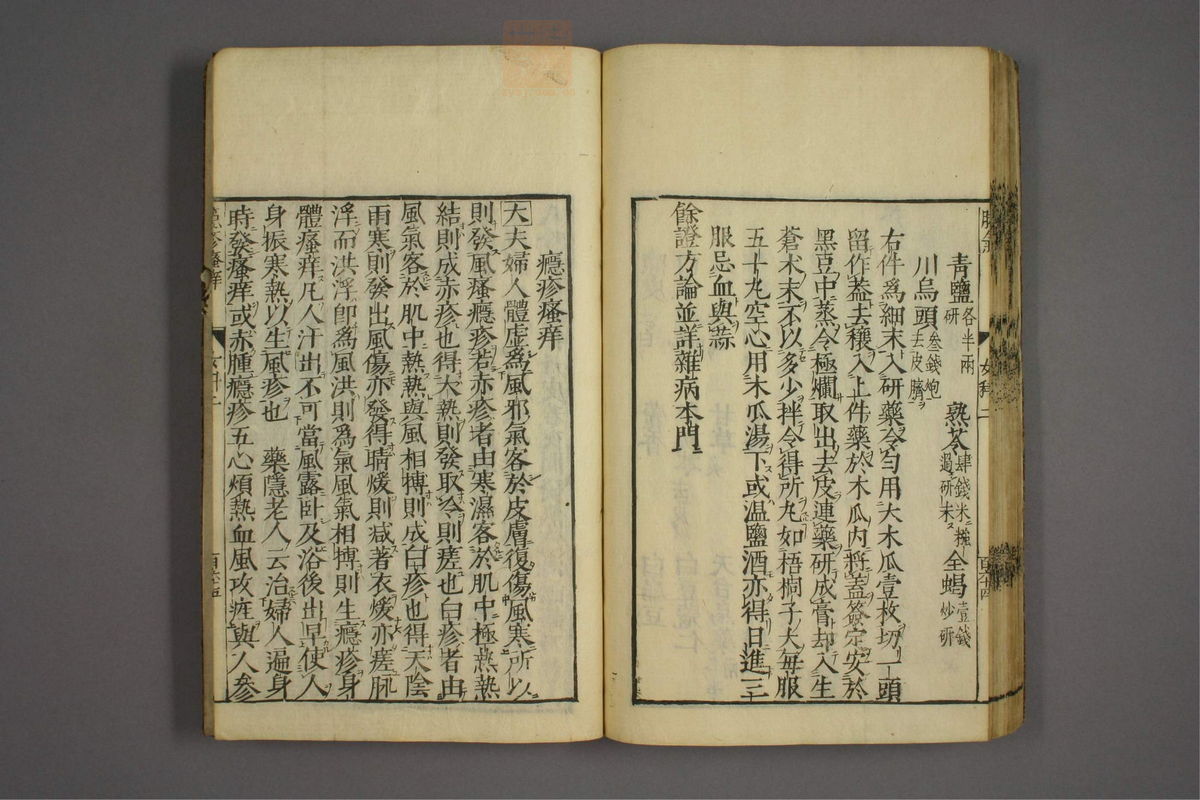 青鹽各半兩研　熟苓肆錢米糝過研末　全蝎壹錢炒研
川烏頭叁錢炮去皮臍
右件爲細末入研藥令勻用大木瓜壹枚切一頭
留作蓋去穰入上件藥於木瓜内將蓋簽定安於
黑豆中蒸令極爛取出去皮連藥研成膏却入生
蒼朮末不以多少拌令得所丸如梧桐子大每服
五十丸空心用木瓜湯下或温鹽酒亦得日進三
服忌血與蒜
餘證方論並詳雜病本門
女科二
癮疹瘙痒
大夫婦人體虚爲風邪氣客於皮膚復傷風寒所以
則發風瘙癮疹若赤疹者由寒濕客於肌中極熱熱
結則成赤疹也得大熱則發取冷則瘥也白疹者由
風氣客於肌中熱熱與風相搏則成白疹也得天陰
雨寒則發出風傷亦發得晴煖則减著衣煖亦瘥脈
浮而洪浮卽爲風洪則爲氣風氣相搏則生癮疹身
體瘙痒凡人汗出不可當風露卧及浴後出早使人
身振寒熱以生風疹也　藥隱老人云治婦人遍身
時發瘙痒或赤腫癮疹五心煩熱血風攻疰與人參
癮疹瘙痒
女科二